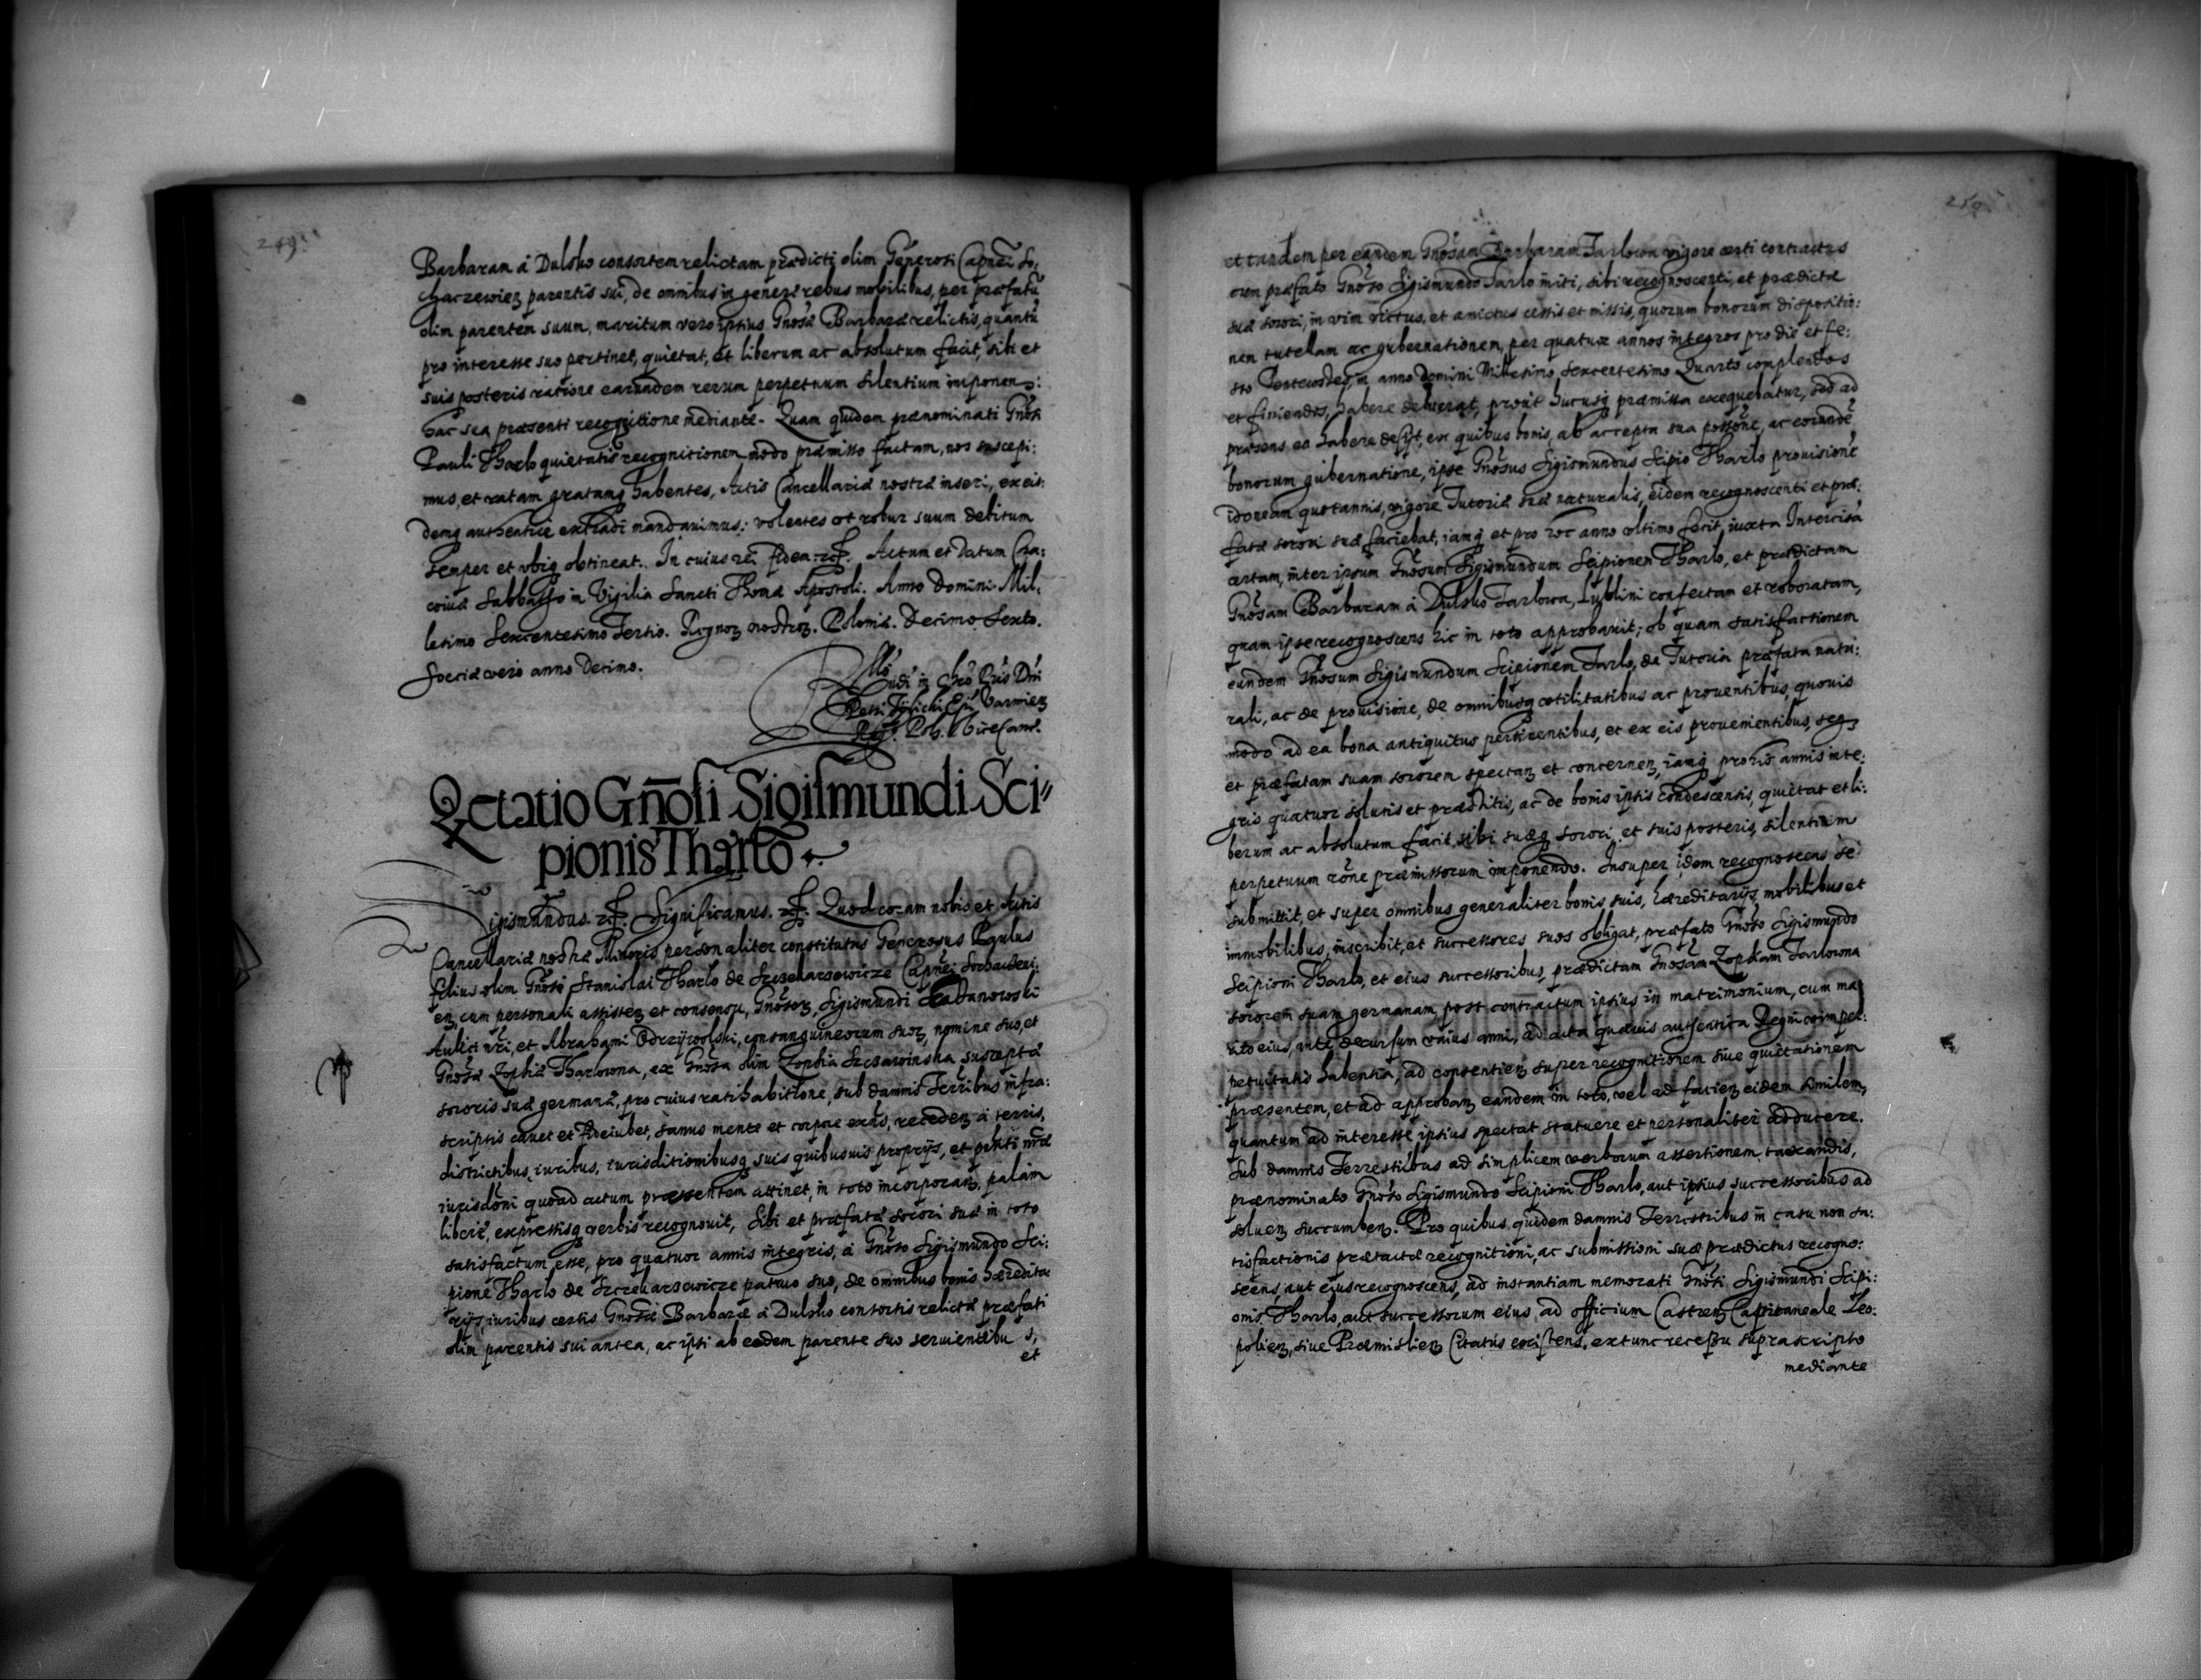 249
Barbaram à Dulsko consortem relictam prædicti olim Generosi Capnei So:
chaczewień parentis sui, de omnibus in genere rebus mobilibus, per præfatū
olim parentem suum, maritum vero ipsius Gnosæ Barbaræ relictis, quantū
pro interesse suo pertinet, quietat, et liberum ac absolutum facit, sibi et
suis posteris ratione earundem rerum perpetuum silentium imponen:
hac sua præsenti recognitione mediante. Quam quidem prænominati Gnosi
Pauli Tharlo quietatis recognitionem, modo præmisso factam, nos suscepi:
mus, et ratam gratamq habentes, Actis Cancellariæ nostræ inseri, ex eis:
demq authenticè extradi mandavimus: volentes vt robur suum debitum
semper et vbiq obtineat. In cuius rei fidem. Actum et Datum Cra:
coviæ Sabbatho in Vigilia Sancti Thomæ Apostoli. Anno Domini Mil,
lesimo Sexcentesimo Tertio. Regnorʒ nostrorʒ. Poloniæ. Decimo Sexto.
Sveciæ vero anno Decimo.
Rndi in Chro Pris Dni
Petri Tylicki Epi Varmień
Reg. Pol. ViceCanc.
Qctatio Gnosi Sigismundi Sci"
pionis Tharło
Sigismundus. Significamus. Quod coram nobis et Actis
Cancellariæ nostræ Minoris personaliter constitutus Generosus Paulus
filius olim Gnosi Stanislai Tharlo de Szczekarzowicze Capnei Sochaczevi:
eń, cum personali assisteń et consensu, Gnosorʒ, Sigismundi Gabanowski
Aulici nri, et Abrahami Odrzywolski, consanguineorum suorʒ, nomine suo, et
Gnosæ Zophiæ Tharlowna, ex Gnosa olim Zophia Szczawinska suscepta
sororis suæ germanæ, pro cuius ratihabitione, sub damnis Terribus infra:
scriptis cavet et fideiubet, sanus mente et corpore exñs, recedeń à terris,
districtibus, iuribus, iurisditionibusq suis quibusuis proprijs, et pnti nræ
iurisdoni quoad actum præsentem attinet, in toto incorporań, palàm
liberè, expressisq verbis recognouit, Sibi et præfatæ sorori suæ in toto
satisfactum esse, pro quatuor annis integris, à Gnoso Sigismundo Sci:
pione Tharlo de Szczekarzowicze patruo suo, de omnibus bonis hæredita:
rijs, iuribus certis Gnosæ Barbaræ à Dulsko consortis relictæ præfati
olim parentis sui antea, ac ipsi ab eodem parente suo seruientibus,
et
250
et tandem per eandem Gnosam Barbaram Tarlowa vigore certi contractus
cum præfato Gnoso Sigismundo Tarlo initi, sibi recognoscenti, et prædictæ
suæ sorori, in vim victus, et amictus cessis et missis, quorum bonorum dispositio:
nem tutellam ac gubernationem, per quatuor annos integros pro die et fe:
sto Pentecostes, in anno Domini Millesimo Sexcentesimo Quarto complendos
et finiendos, habere debuerat, prout hucusq præmissa exequebatur, sed ad
præsens ea habere desijt, ex quibus bonis, ab accepta sua possone, ac eorundē
bonorum gubernatione, ipse Gnosus Sigismundus Scipio Tharlo prouisionē
idoneam quotannis, vigore Tutoriæ suæ naturalis, eidem recognoscenti et præ:
fatæ sorori suæ faciebat, iamq et pro hoc anno vltimo fecit, iuxta Intercisā
certam, inter ipsum Gnosum Sigismundum Scipionem Tharlo, et prædictam
Gnosam Barbaram à Dulsko Tarlowa, Lublini confectam et roboratam,
quam ipse recognoscens hic in toto approbauit; ob quam satisfactionem
eundem Gnosum Sigismundum Scipionem Tarlo, de Tutoria præfata natu:
rali, ac de prouisione, de omnibusq vtilitatibus ac prouentibus, quouis
modo ad ea bona antiquitus pertinentibus, et ex eis prouenientibus, seq
et præfatam suam sororem spectań et concerneń, iamq pro his annis inte:
gris quatuor solutis et præstitis, ac de bonis ipsis condescensis, quietat et li:
berum ac absolutum facit, sibi suæq sorori, et suis posteris, silentium
perpetuum rone præmissorum imponendo. Insuper idem recognoscens se
submittit, et super omnibus generaliter bonis suis, hæreditarijs, mobilibus et
immobilibus, inscribit, et successores suos obligat, præfato Gnoso Sigismundo
Scipioni Tharlo, et eius successoribus, prædictam Gnosam Zophiam Tarlowna
sororem suam germanam, post contractum ipsius in matrimonium, cum ma
rito eius, ante decursum vnius anni, ad acta quæuis authentica Regni com per:
petuitatis habentia, ad consentień super recognitionem siue quietationem
præsentem, et ad approbań eandem in toto, vel ad facień eidem similem,
quantum ad interesse ipsius spectat statuere et personaliter adducere.
Sub damnis Terrestribus ad simplicem verborum assertionem taxandis,
prænominato Gnoso Sigismundo Scipioni Tharlo, aut ipsius successoribus ad
soluen̄ succumben̄. Pro quibus quidem damnis Terrestribus in casu non sa:
tisfactionis prætactæ recognitioni, ac submissioni suæ prædictus recogno:
scens, aut eius recognoscens, ad instantiam memorati Gnosi Sigismundi Scipi:
onis Tharlo, aut successorum eius, ad officium Castreń Capitaneale Leo:
polień, siue Præmislień Citatus existens, extunc recessu suprascripto
mediante